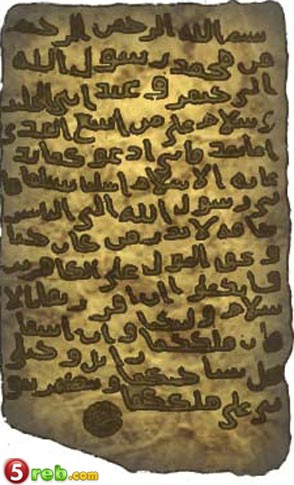 بسم الله الرحمن الرحيم
من محمد رسول الله
الى جيفر و عبد ابني الجلند
ى سلام على من اتبع الهدى
اما بعد فاني ادعوكما بد
عايه الاسلام اسلما تسلما فا
ني رسول الله الى الناس
كافه لانذر من كان حيا
و يحق القول على الكافرين
فانكما ان اقررتما بالا
سلام وليتكما وان ابيتما
فان ملككما زايل و خيلي
تحل بساحتكما و تظهر نبو
تي على ملككما
5reb.com